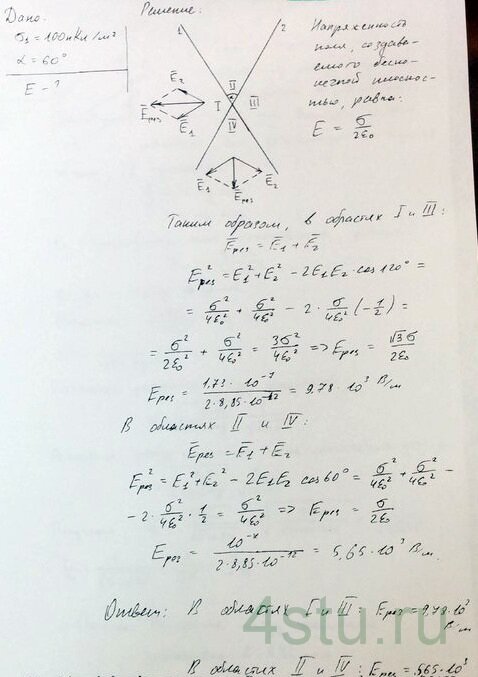 Дано:
σ₁ = 100 нКл/м²
α = 60°
E - ?
Решение:
1
2
I
II
III
IV
E̅₂
E̅рез
E̅₁
E̅₁
E̅рез
E̅₂
Напряженность
поля, создава-
емого беско-
нечной плоскос-
тью, равна:
E = σ/2ε₀
Таким образом, в областях I и III:
E̅рез = E̅₁ + E̅₂
E²рез = E₁² + E₂² - 2E₁E₂ · cos 120° =
= σ²/4ε₀² + σ²/4ε₀² - 2 · σ/4ε₀² (-1/2) =
= σ²/2ε₀² + σ²/4ε₀² = 3σ²/4ε₀² => Eрез = √3σ/2ε₀
Eрез = 1,73 · 10⁻⁷/2·8,85·10⁻¹² = 9,78 · 10³ В/м
В областях II и IV:
E̅рез = E̅₁ + E̅₂
E²рез = E₁² + E₂² - 2E₁E₂ cos 60° = σ²/4ε₀² + σ²/4ε₀² -
- 2 · σ²/4ε₀² · 1/2 = σ²/4ε₀² => Eрез = σ/2ε₀
Eрез = 10⁻⁷/2·8,85·10⁻¹² = 5,65 · 10³ В/м.
Ответ: В областях I и III: Eрез = 9,78·10³
В/м
4stu.ru
В областях II и IV: Eрез = 5,65·10³